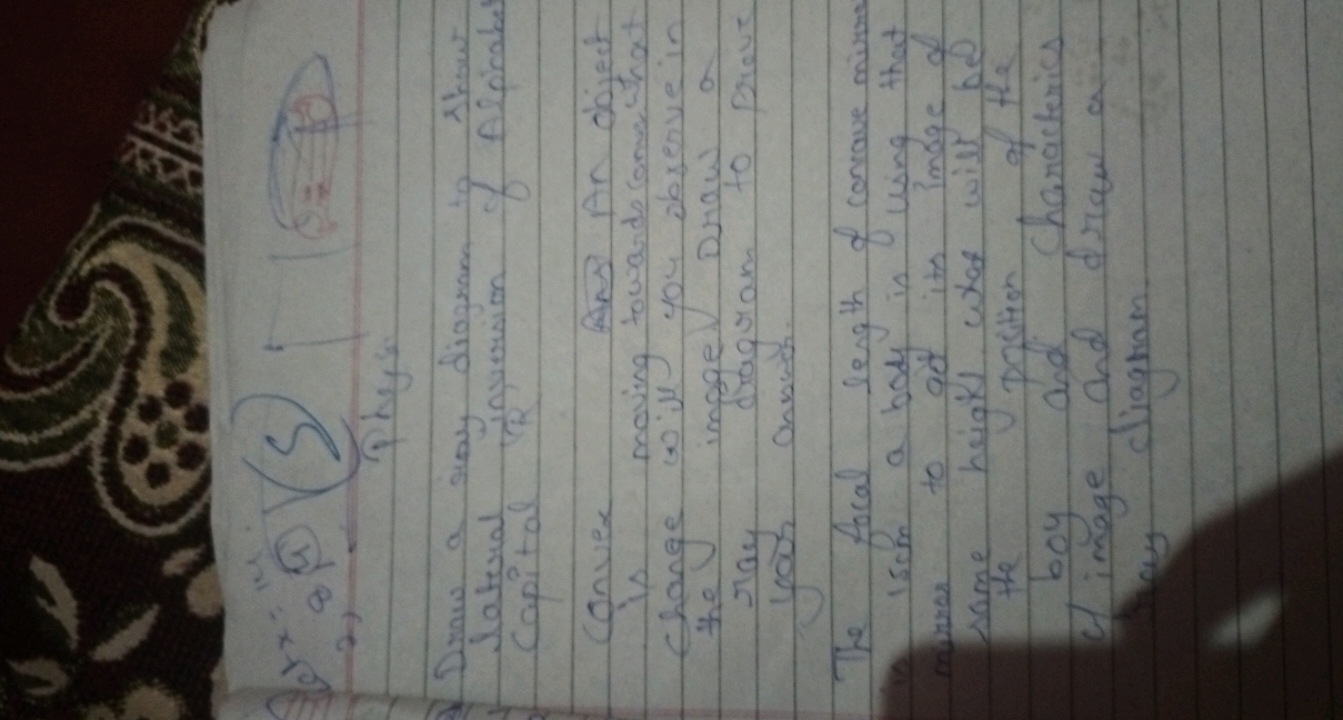 Physi
Draw a ray diagram to show
lateral inversion of Alphabet
Capital R
Convex An object
is moving towards Convex what
change will you observe in
the image Draw a
ray diagram to prove
your answer.
The focal length of concave mirror
is 15cm a body is using that
mirror to get its image of
same height what will be
the position of the
boy and characterics
of image and draw a
ray diagram